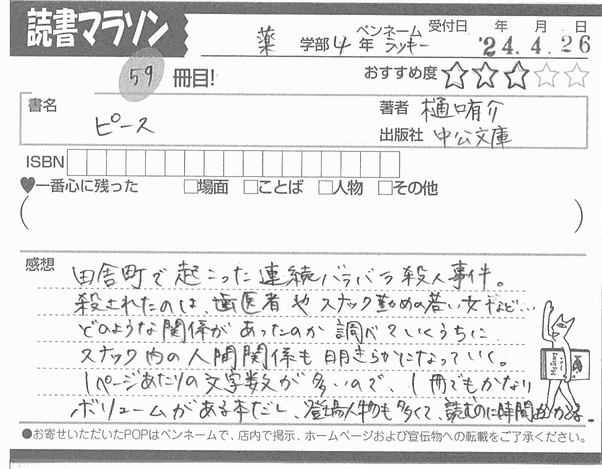 読書マラソン
薬 学部 4 年 ペンネーム ラッキー 受付日 年 月 日 '24.4.26
59 冊目!
おすすめ度 ★★★☆☆
書名 ピース
著者 樋口有介
出版社 中公文庫
ISBN
♥一番心に残った □場面 □ことば □人物 □その他
( )
感想
田舎町で起こった連続バラバラ殺人事件。
殺されたのは、歯医者やスナック勤めの若い女など…
どのような関係があったのか調べていくうちに
スナック内の人間関係も明きらかになっていく。
1ページあたりの文字数が多いので、1冊でもかなり
ボリュームがある本だし、登場人物も多くて、読むのに時間がかかる。
●お寄せいただいたPOPはペンネームで、店内で掲示、ホームページおよび宣伝物への転載をご了承ください。